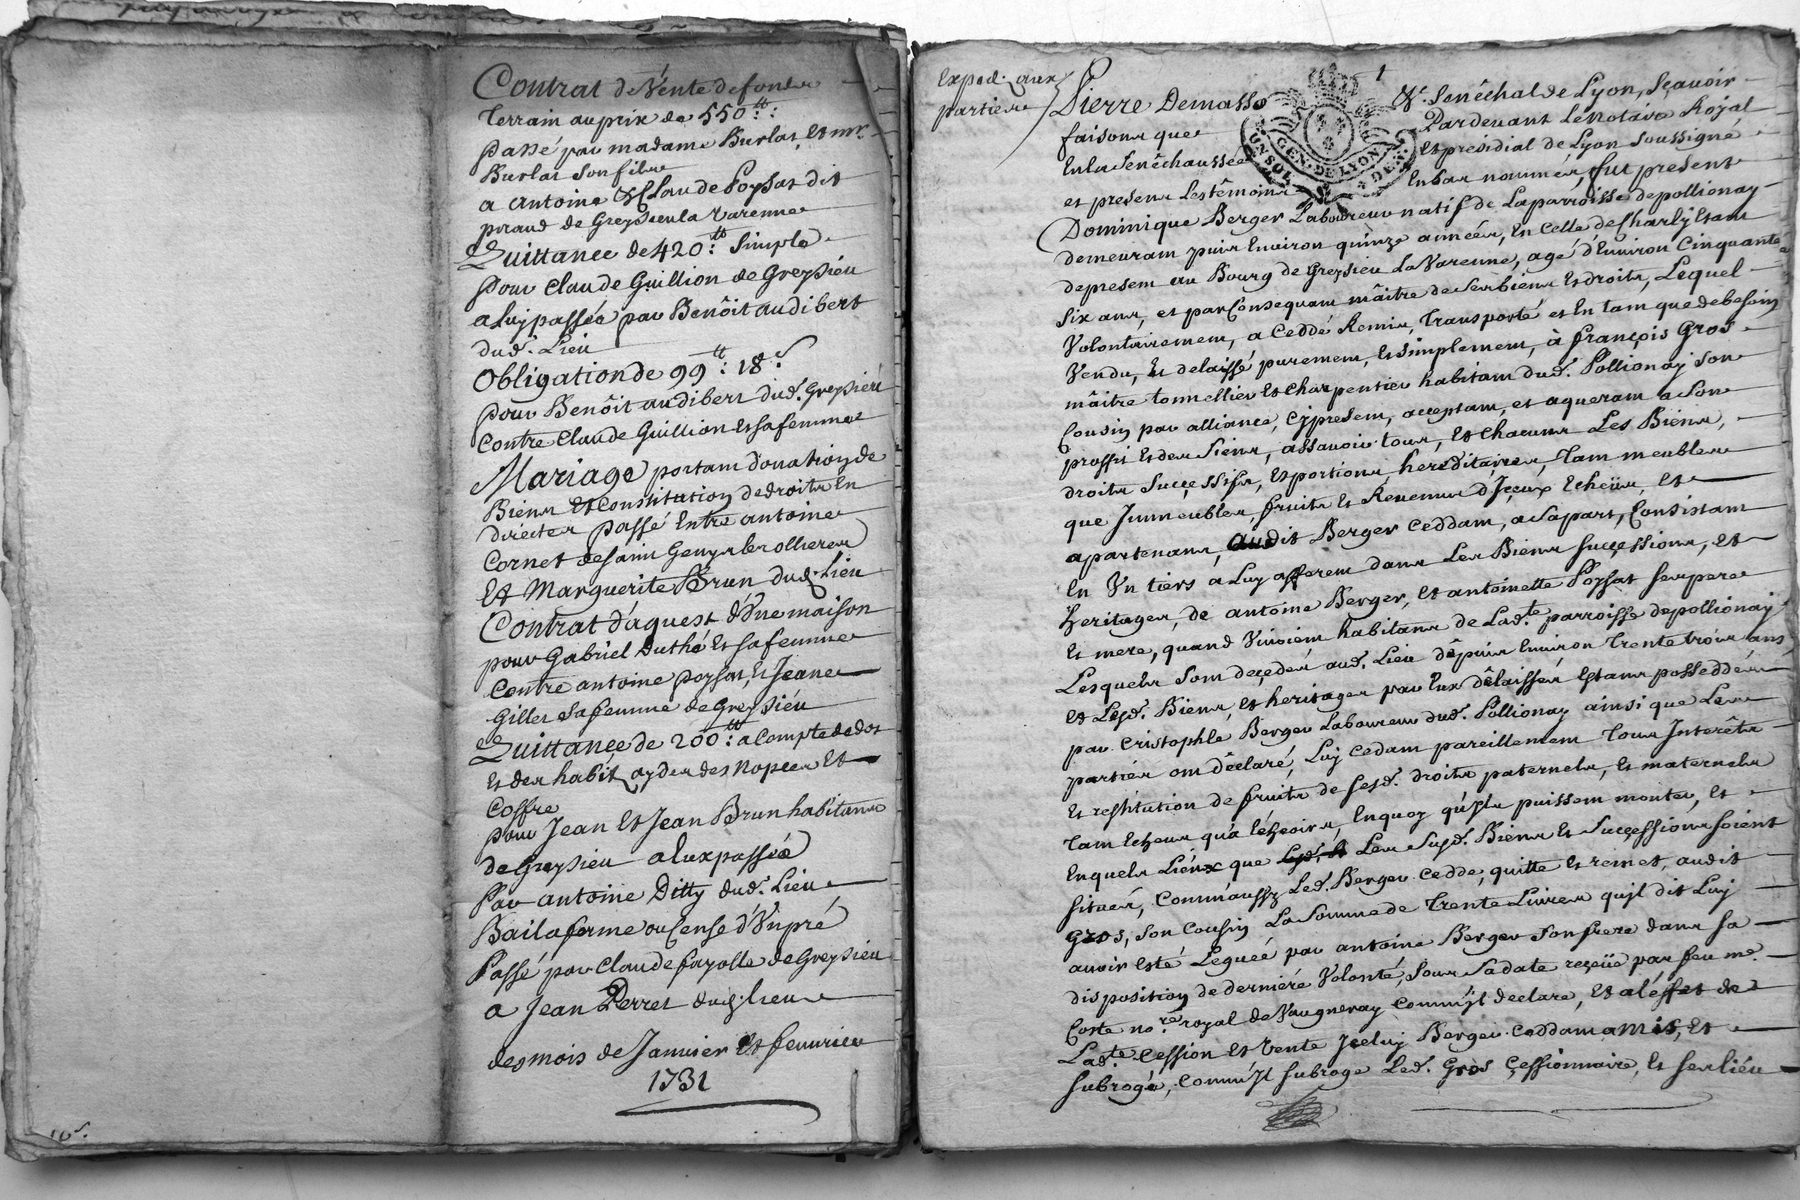 Contrat de Vente de fonds
Terrain au prix de 550ᵗᵗ:
passé par madame Burlat, Et mr.
Burlat son fils
a antoine & Claude Poysat dit
piraud de Greysieu la Varenne
Quittance de 420:ᵗᵗ simple
pour Claude Guillion de Greysieu
a luy passée par Benôit audibert
dud. Lieu
Obligation de 99ᵗᵗ: 18ˢ
pour Benôit audibert dud. Greysieu
contre Claude Guillion et sa femme
Mariage portant donation de
Biens et Constitution de droits En
directes passé Entre antoine
Cornet de saint Genys les ollieres
Et Marguerite Brun dud. Lieu
Contrat d'aquest d'Vne maison
pour Gabriel Duthé et sa femme
Contre antoine poysat, et Jeane
Gillet sa femme de Greysieu
Quittance de 200:ᵗᵗ a Compte de dot
et des habits des Nopces Et
Coffre
pour Jean Et Jean Brun habitans
de Greysieu a Eux passée
Par antoine Ditty dud. Lieu
Bail a ferme ou Cense d'Vn pré
Passé par Claude fayolle de Greysieu
a Jean Perret dud. lieu
des mois de Janvier Et feuvrier
1731
Exped. aux
parties
1
Pierre Demasso Sr. Senêchal de Lyon, Sçavoir
faisons que Pardevant Le Notaire Royal
En la Senêchaussée Et presidial de Lyon soussigné
et presens Les têmoins En bas nommés, fut present
GEN. DE LYON
UN SOL
DEN.
Dominique Berger Laboureur natif de La parroisse de pollionay
demeurant puis Environ quinze années, En Celle de Charly Etant
de present au Bourg de Greysieu La Varenne, agé d'Environ Cinquante
six ans, et par Consequant mâitre de ses biens Et droits, Lequel
Volontairement, a Ceddé Remis, Transporté et En tant que de besoin
Vendu, Et delaissé purement, Et simplement, à françois Gros
mâitre tonnellier Et Charpentier habitant dud. Pollionay son
Cousin par alliance, Cy present, acceptant, et aquerant a son
proffit Et des siens, assavoir tous, Et Chacuns Les Biens,
droits successifs, Et portions hereditaires, Tant meubles
que Immeubles, fruits Et Revenus d'Jceux Echeüs, et
apartenans, audit Berger Ceddant, a sa part, Consistant
En Vn tiers a Luy afferent dans Les Biens successions, et
heritages, de antoine Berger, Et antoinette Poysat ses pere
Et mere, quand Vivoient habitans de Lad.te parroisse de pollionay
Lesquels sont decedés aud. Lieu dêpuis Environ Trente trois ans
Et Lesd. Biens, et heritages par Eux dêlaissés Etans posseddés
par Cristophle Berger Laboureur dud. Pollionay ainsi que Les
parties ont dêclaré, Luy cedant pareillement Tous Interêts
Et restitution de fruits de sesd. droits paternels, Et maternels
Tant Echeus qu'a Echeoirs, En quoy qu'ils puissent monter, Et
En quels Lieux que Les susd. Biens Et Successions soient
situés, Comm'aussy Led. Berger Cedde, quitte Et remet, audit
Gros, son Cousin La Somme de Trente Livres qu'il dit Luy
avoir Esté Leguée par antoine Berger son frere dans sa
disposition de derniére Volonté, sous sa date reçeüe par feu mᵉ.
Coste no.re royal de Vaugneray comm'jl declare, Et a l'éffet de
Lad.te Cession Et Vente Jceluy Berger Ceddant a mis, Et
subrogé, Comm'Jl subroge Led. Gros Çessionnaire, En ses liéu